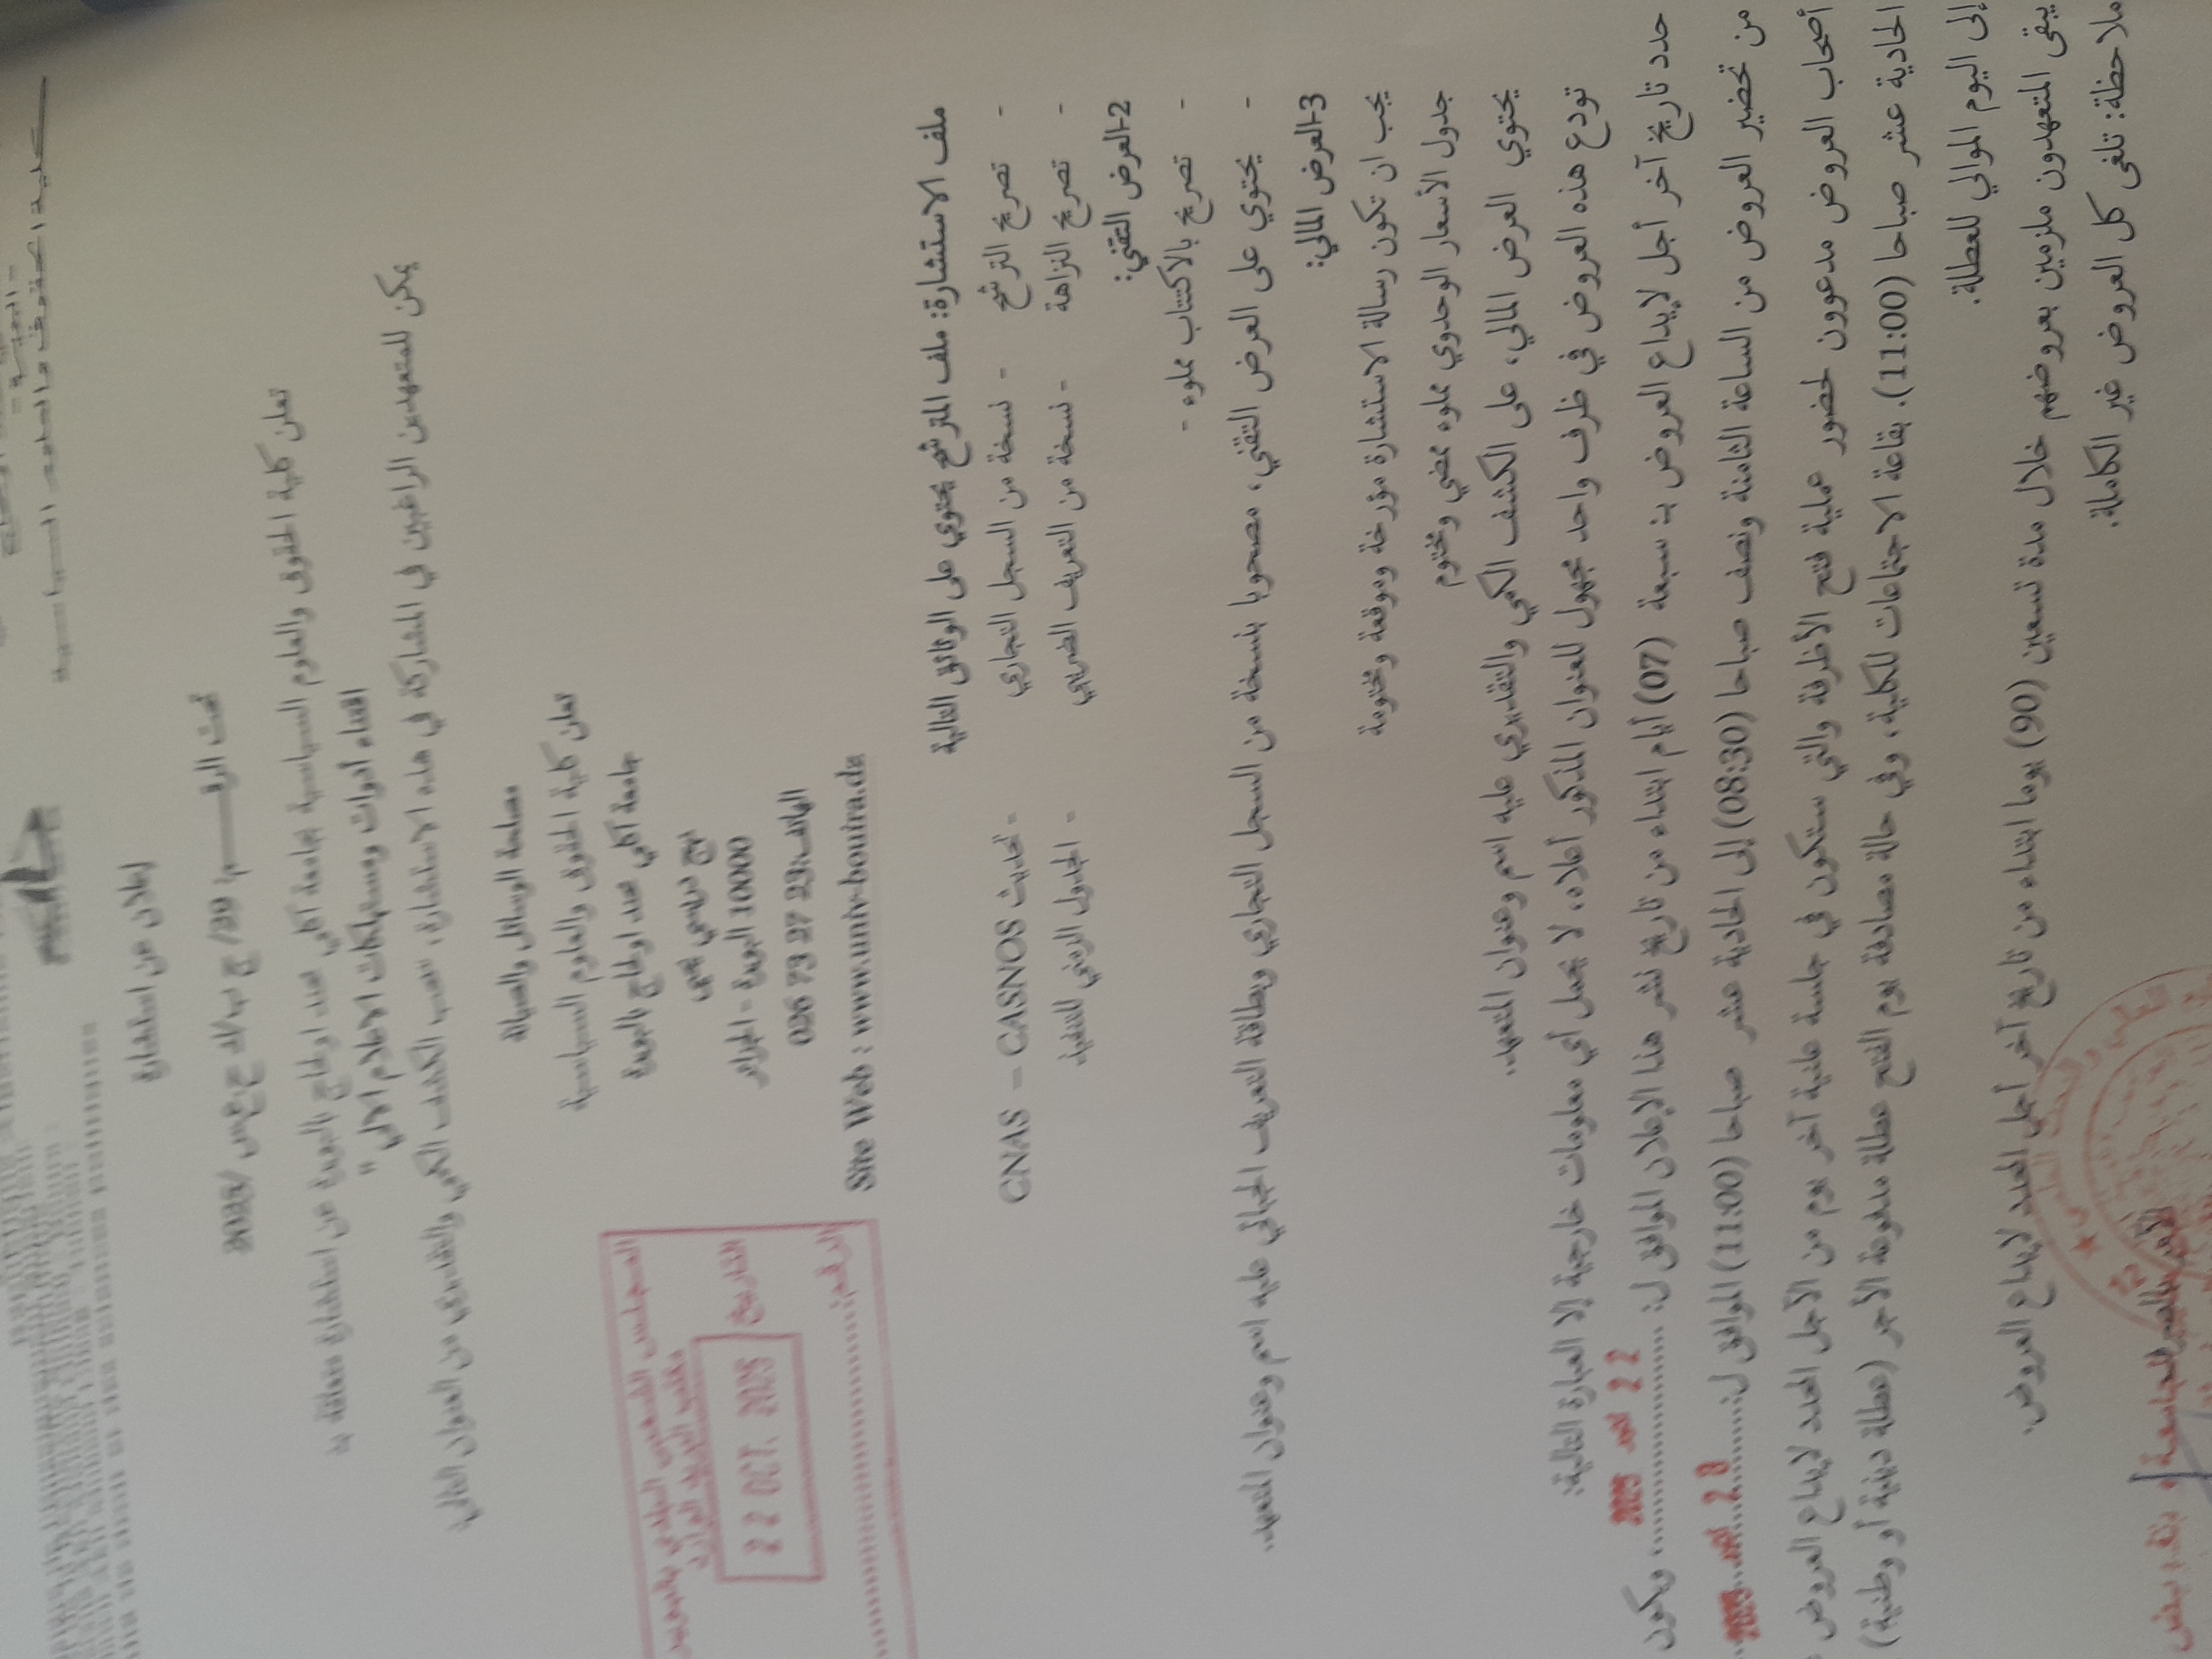 كلية الحقوق والعلوم السياسية
إعلان عن استشارة
تحت الرقـــــم: 09/ ج ب/ك ح ع س /2025
تعلن كلية الحقوق والعلوم السياسية بجامعة آكلي محند اولحاج بالبويرة عن استشارة متعلقة بـ
اقتناء أدوات ومستهلكات الاعلام الآلي "
يمكن للمتعهدين الراغبين في المشاركة في هذه الاستشارة، سحب الكشف الكمي والتقديري من العنوان التالي:
مصلحة الوسائل والصيانة
تعلن كلية الحقوق والعلوم السياسية
جامعة آكلي محند اولحاج بالبويرة
نهج دريسي يحيى
10000 البويرة - الجزائر
الهاتف: 026 73 27 23
Site Web : www.univ-bouira.dz
المجلس الشعبي البلدي بالبويرة
مكتب البريد الوارد
التاريخ
22 OCT. 2025
الرقم:
ملف الاستشارة: ملف المترشح يحتوي على الوثائق التالية
- تصريح الترشح - نسخة من السجل التجاري - تحديث CNAS – CASNOS
- تصريح النزاهة - نسخة من التعريف الضريبي - الجدول الزمني للتنفيذ
2-العرض التقني:
- تصريح بالاكتتاب مملوء -
- يحتوي على العرض التقني، مصحوبا بنسخة من السجل التجاري وبطاقة التعريف الجبائي عليه اسم وعنوان المتعهد.
3-العرض المالي:
يجب ان تكون رسالة الاستشارة مؤرخة وموقعة ومختومة
جدول الأسعار الوحدوي مملوء ممضي ومختوم
يحتوي العرض المالي، على الكشف الكمي والتقديري عليه اسم وعنوان المتعهد.
تودع هذه العروض في ظرف واحد مجهول للعنوان المذكور أعلاه، لا يحمل أي معلومات خارجية إلا العبارة التالية:
حدد تاريخ آخر أجل لإيداع العروض بـ سبعة (07) أيام ابتداء من تاريخ نشر هذا الإعلان الموافق ل: 22 2025، ويكون
من تحضير العروض من الساعة الثامنة ونصف صباحا (08:30) إلى الحادية عشر صباحا (11:00) الموافق ل: 28 2025
أصحاب العروض مدعوون لحضور عملية فتح الأظرفة والتي ستكون في جلسة علنية آخر يوم من الأجل المحدد لإيداع العروض
الحادية عشر صباحا (11:00). بقاعة الاجتماعات للكلية، وفي حالة مصادفة يوم الفتح عطلة مدفوعة الأجر (عطلة دينية أو وطنية)
إلى اليوم الموالي للعطلة.
يبقى المتعهدون ملزمين بعروضهم خلال مدة تسعين (90) يوما ابتداء من تاريخ آخر أجل المحدد لإيداع العروض.
ملاحظة: تلغى كل العروض غير الكاملة.